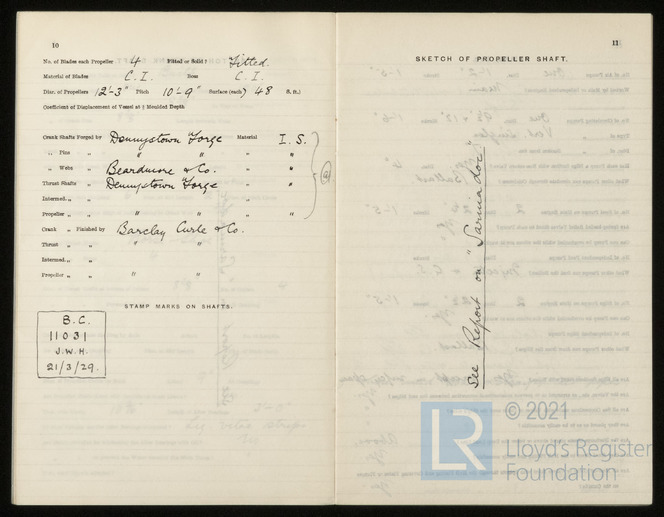 10
No. of Blades each Propeller 4 Fitted or Solid? Fitted.
Material of Blades C. I. Boss C. I.
Diar. of Propellers 12'-3" Pitch 10'-9" Surface (each) 48 S. ft.
Coefficient of Displacement of Vessel at ¾ Moulded Depth
Crank Shafts Forged by Dennystown Forge Material I. S.
„ Pins „ " " „ "
„ Webs „ Beardmore & Co. „ "
Thrust Shafts „ Dennystown Forge „ "
Intermed. „ „ „
Propeller „ „ " " „ "
Crank „ Finished by Barclay Curle & Co.
Thrust „ „ " "
Intermed. „ „
Propeller „ „ " "
STAMP MARKS ON SHAFTS.
B.C.
11031
J.W.H.
21/3/29.
11
SKETCH OF PROPELLER SHAFT.
See Report on "Sarmadoc"
© 2021
LR
Lloyd's Register
Foundation